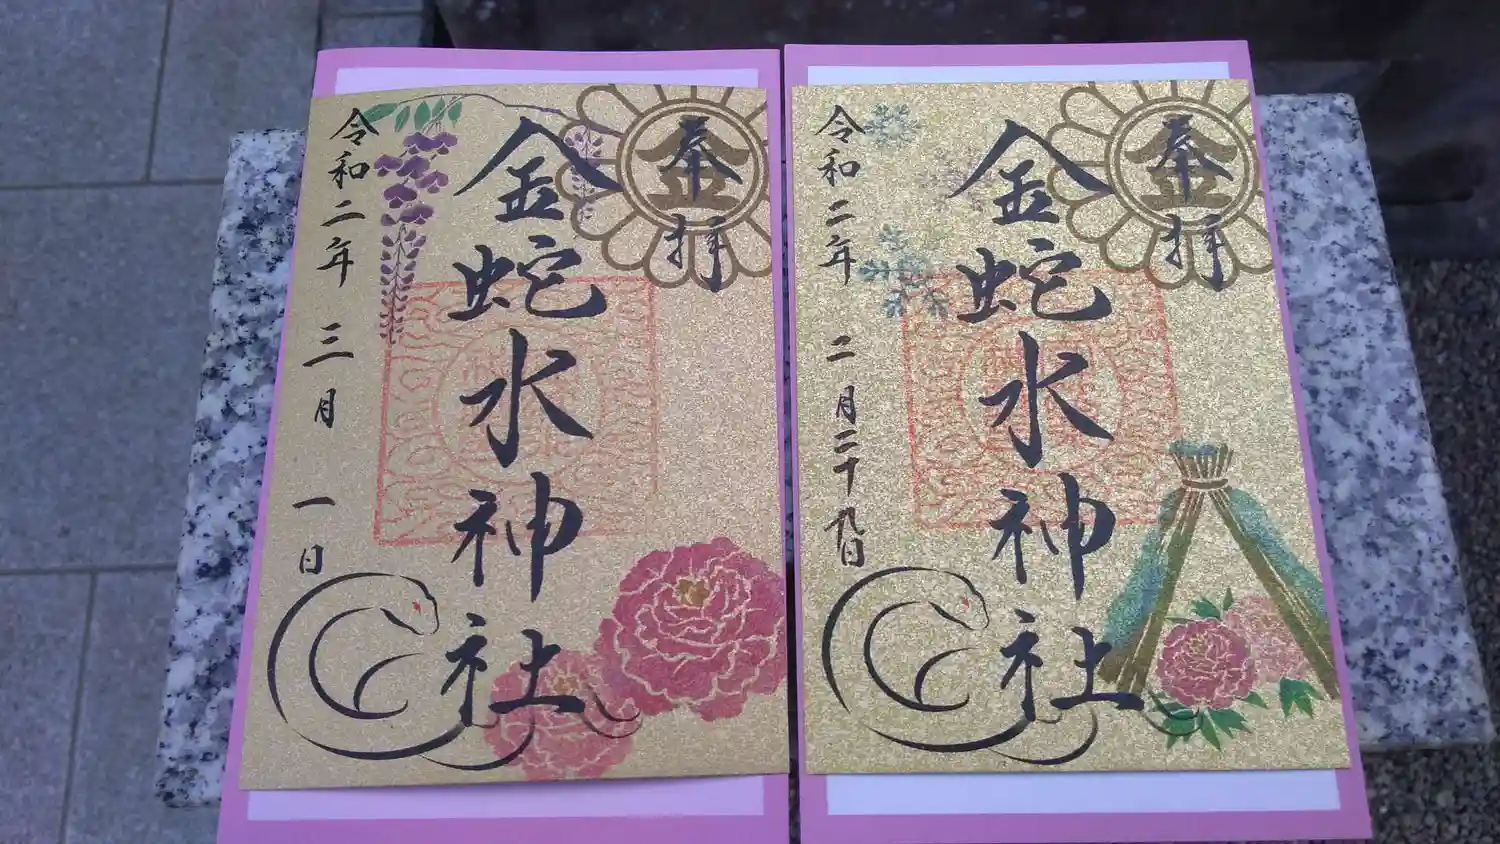 奉拝
金蛇水神社
令和二年三月一日
奉拝
金蛇水神社
令和二年二月二十九日